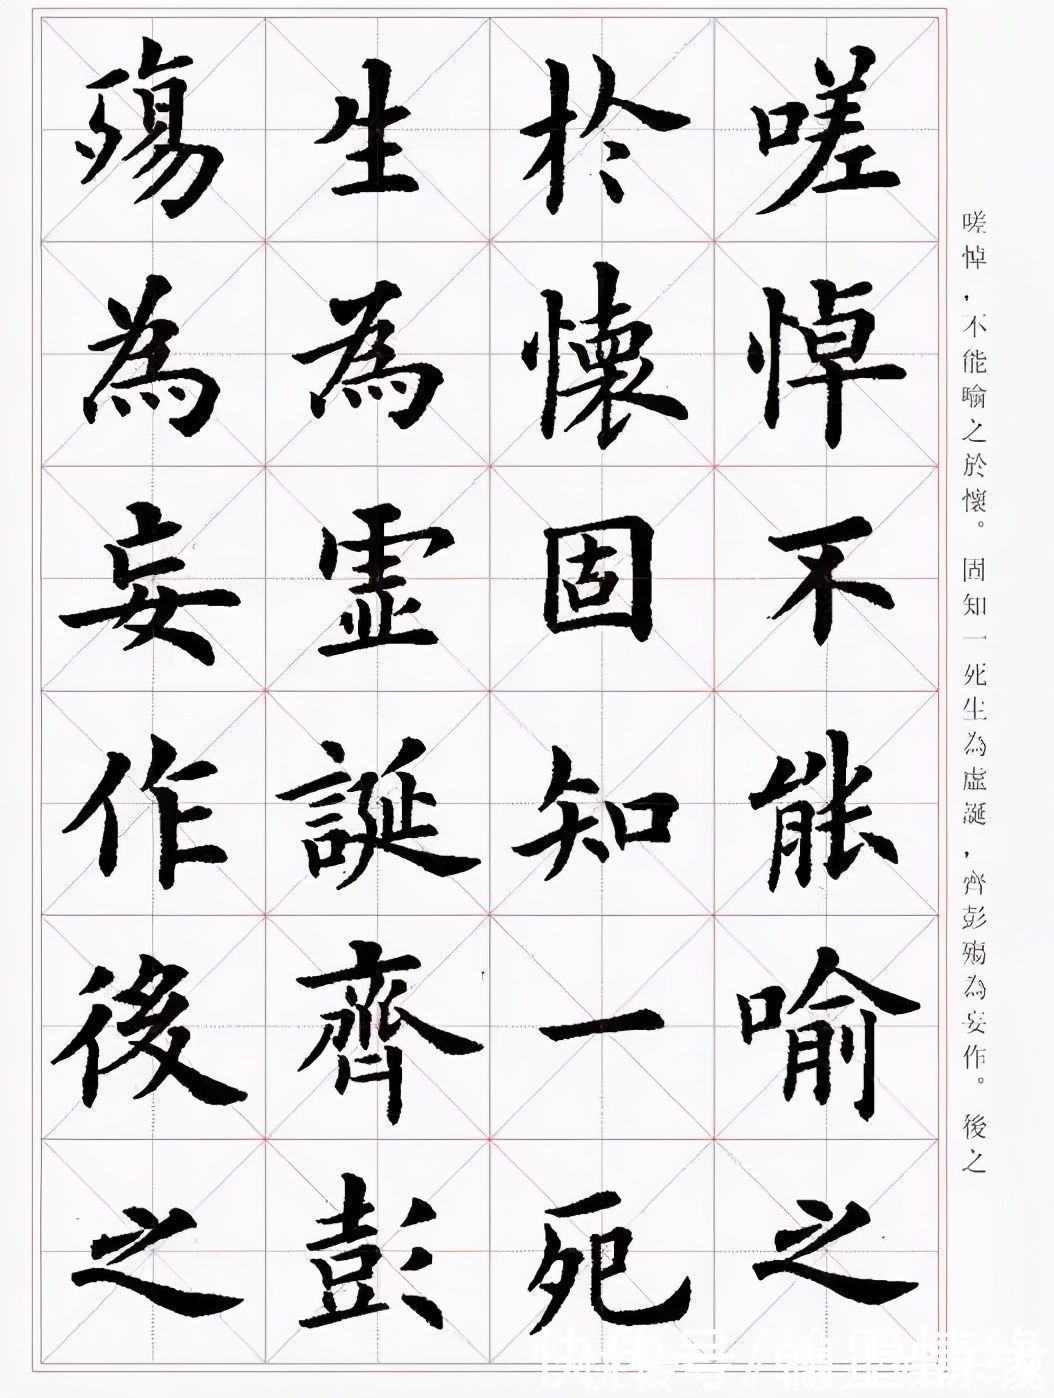 嗟悼不能喻之
於懷固知一死
生為虛誕齊彭
殤為妄作後之
嗟悼，不能喻之於懷。固知一死生為虛誕，齊彭殤為妄作。後之
快传号/翰墨情缘